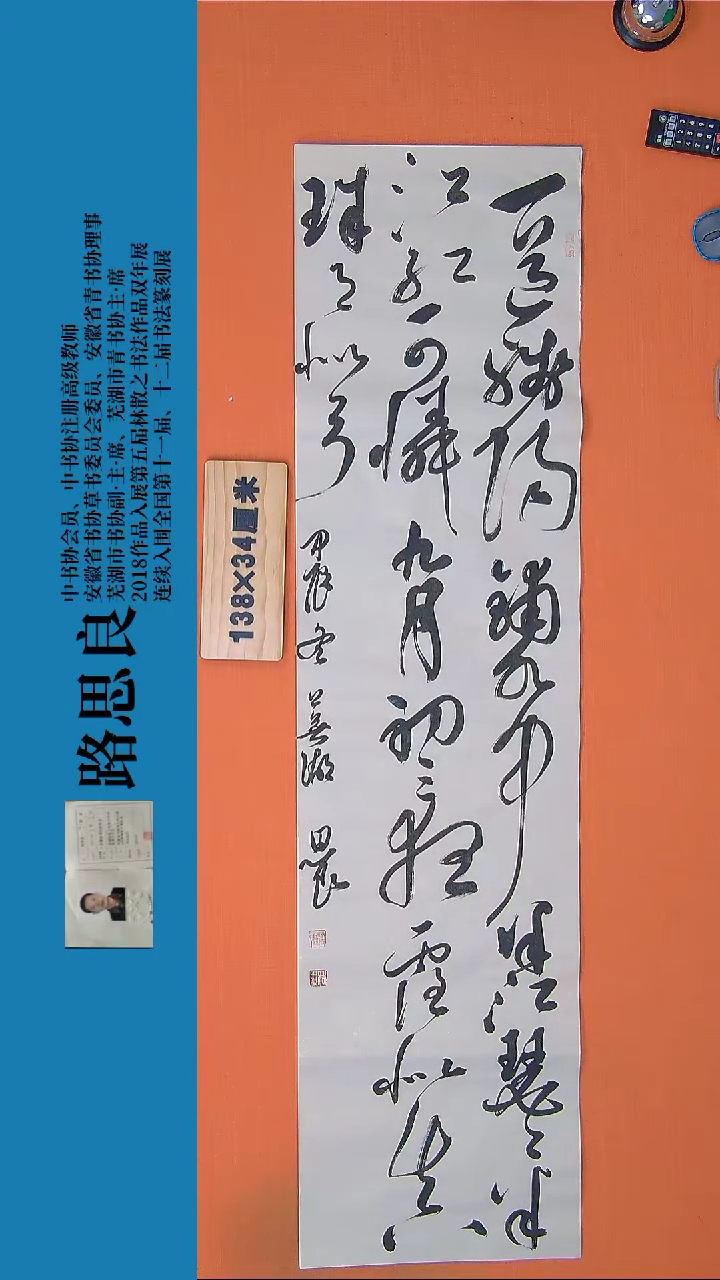 路思良
中书协会员、中书协注册高级教师
安徽省书协草书委员会委员、安徽省青书协理事
芜湖市书协副·主·席、芜湖市青书协主·席
2018作品入展第五届林散之书法作品双年展
连续入围全国第十一届、十二届书法篆刻展
138×34厘米
一道残陽鋪水中半江瑟瑟半
江紅可憐九月初三夜露似真
珠月似弓 甲辰冬 蕪湖 思良